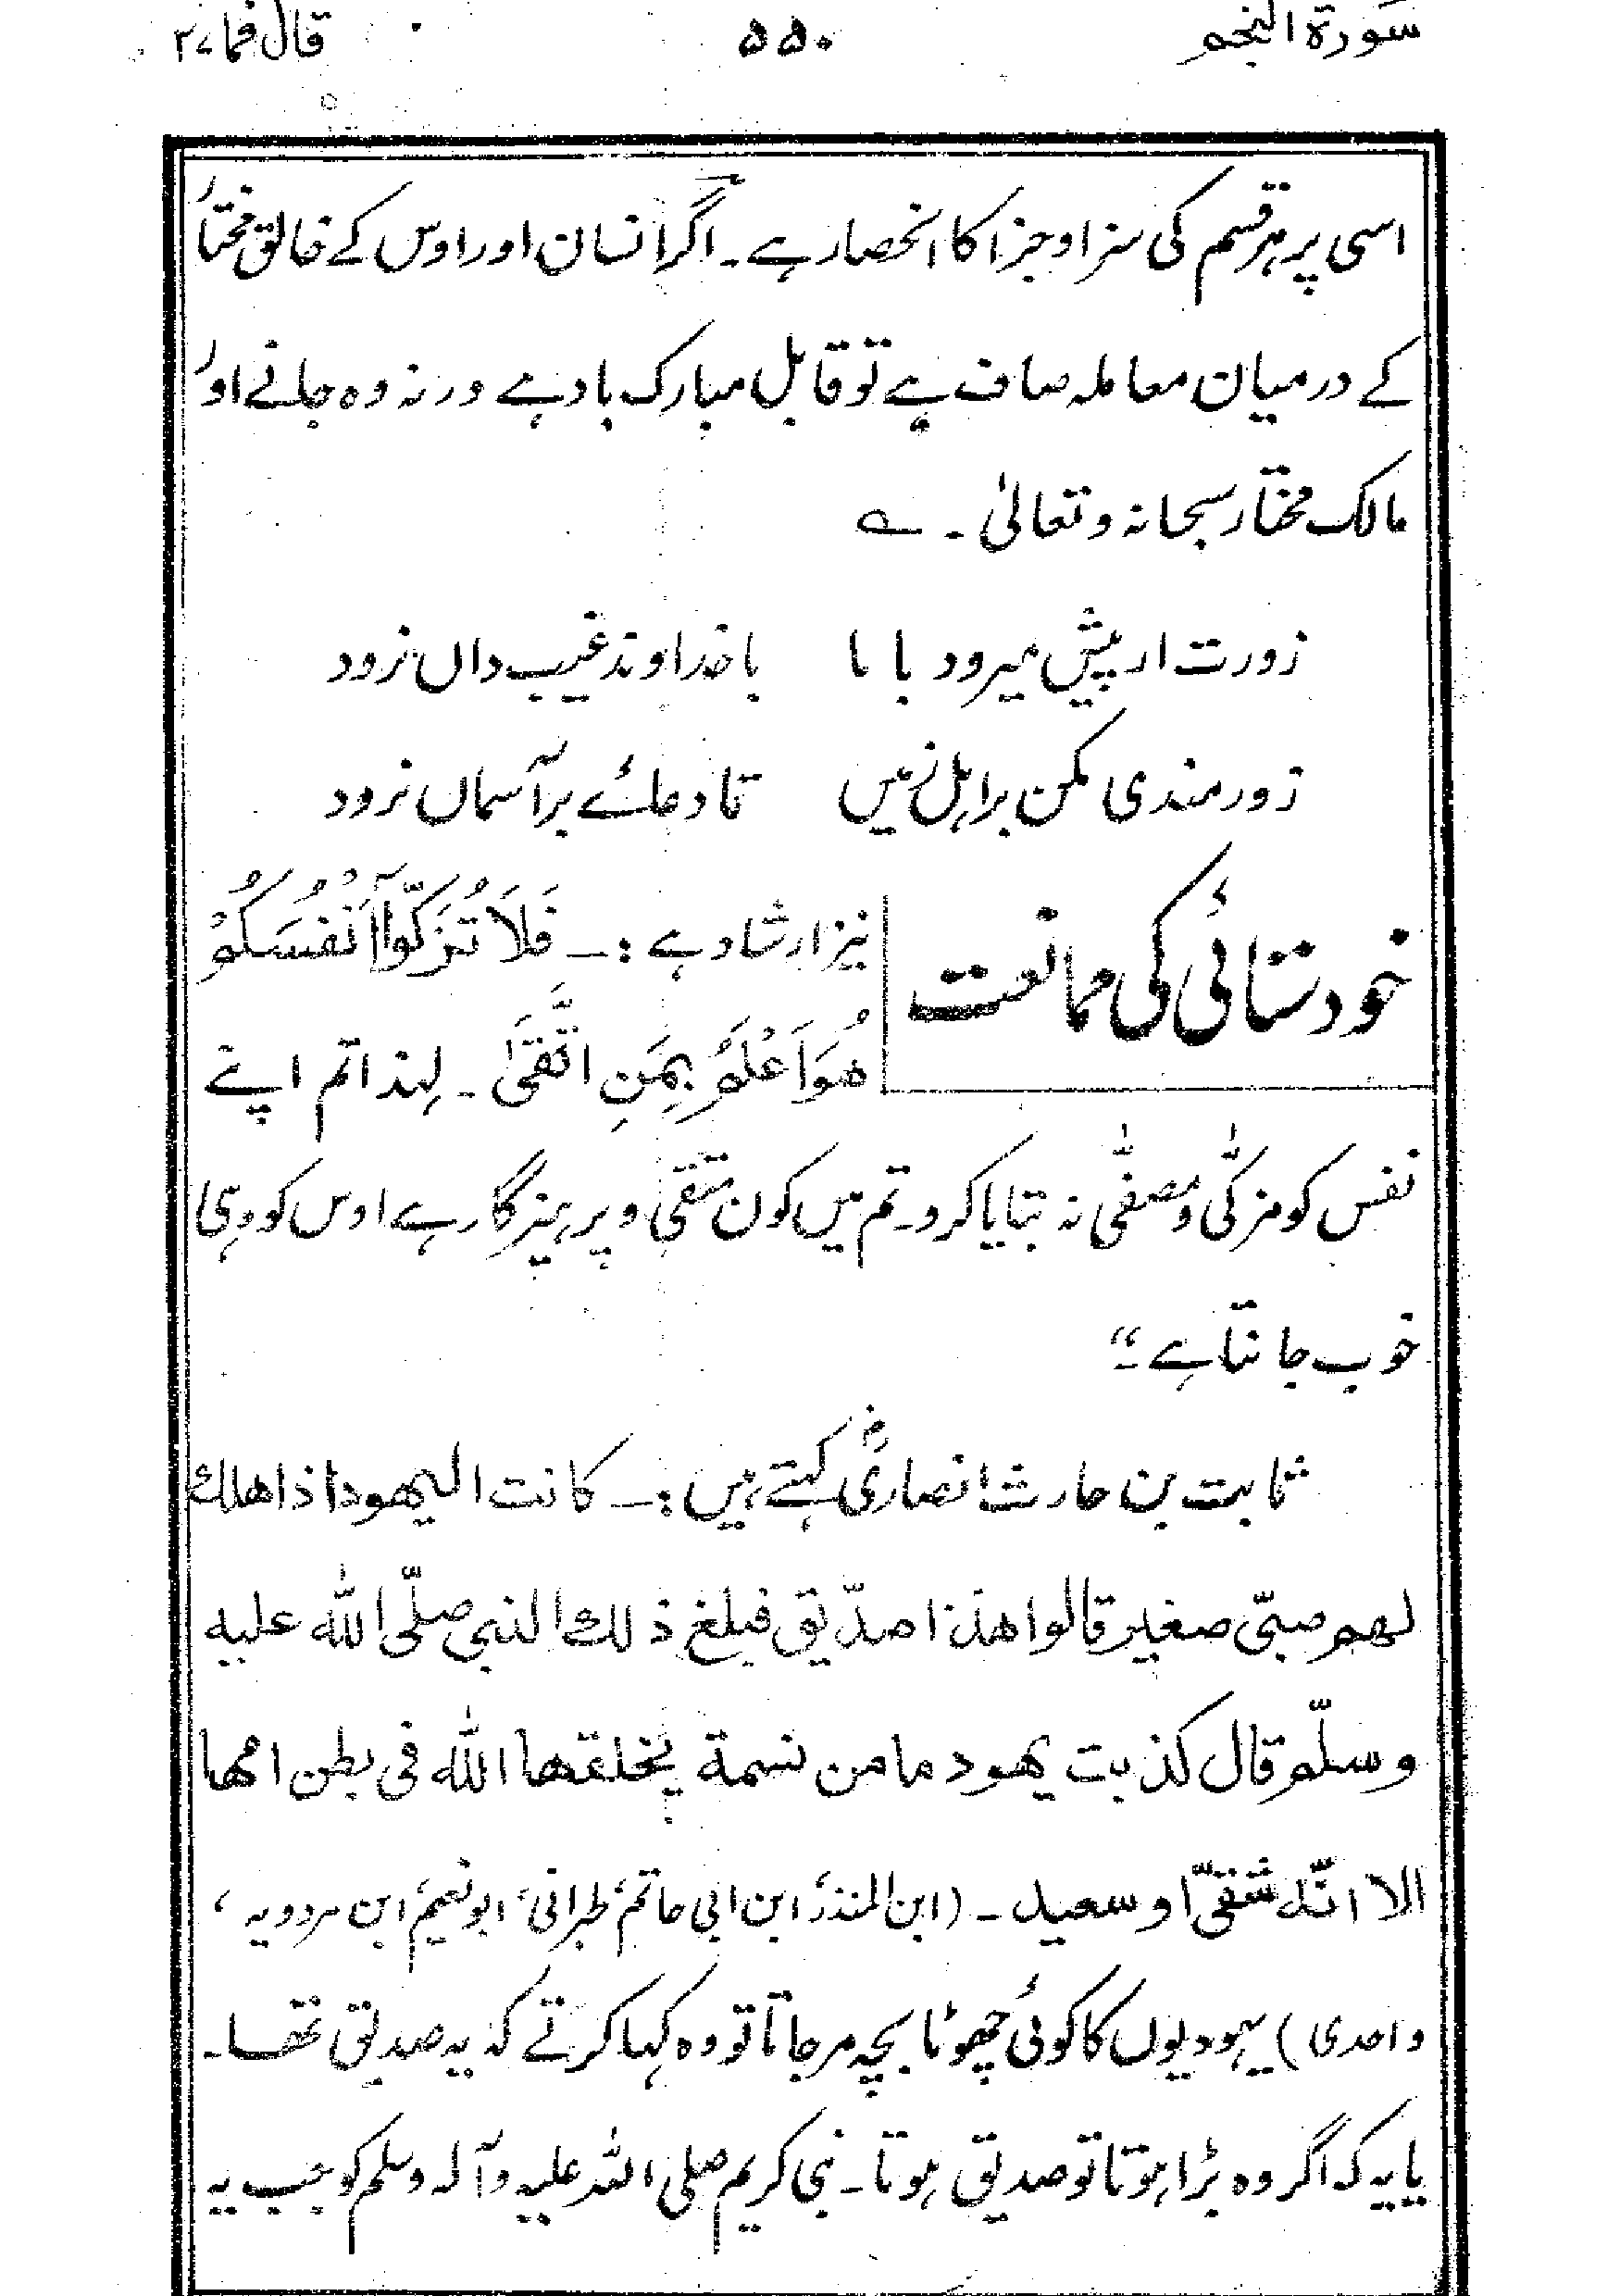 سورة النجم ۵۵۰ قال فما ۲۷
اسی پر ہر قسم کی سزا و جزا کا انحصار ہے۔ اگر انسان اور اوس کے خالق مختار
کے درمیان معاملہ صاف ہے تو قابل مبارک باد ہے ورنہ وہ جانے اور
مالک مختار سبحانہ وتعالیٰ۔ ؎
زورت ار پیش میرود با ما با خداوند غیب داں نرود
زورمندی مکن بر اہل زمیں تا دعائے بر آسماں نرود
خودستائی کی ممانعت
نیز ارشاد ہے :۔ فَلَا تُزَكُّوٓا اَنْفُسَكُمْ
هُوَ اَعْلَمُ بِمَنِ اتَّقٰى ۔ لہذا تم اپنے
نفس کو مزکّٰی و مصفّٰی نہ بتایا کرو۔ تم میں کون متقی و پرہیزگار ہے اوس کو وہی
خوب جانتا ہے۔“
ثابت بن حارث انصاریؓ کہتے ہیں :۔ کانت الیهود اذا هلك
لهم صبیّ صغیر قالوا هذا صدّیق فبلغ ذلك النبی صلّی اللّٰه علیه
وسلّم قال کذبت یهود ما من نسمة یخلقها اللّٰه فی بطن امها
الا انّه شقیّ او سعید ۔ (ابن المنذر، ابن ابی حاتم، طبرانی، ابو نعیم، ابن مردویہ،
واحدی) یہودیوں کا کوئی چھوٹا بچہ مرجاتا تو وہ کہا کرتے کہ یہ صدیق تھا۔
یا یہ کہ اگر وہ بڑا ہوتا تو صدیق ہوتا۔ نبی کریم صلی اللہ علیہ وآلہ وسلم کو جب یہ